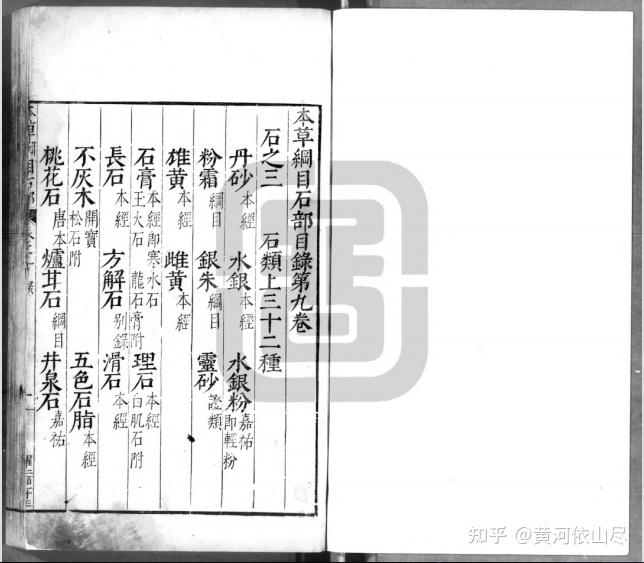 本草綱目石部目錄第九卷
石之三 石類上三十二種
丹砂本經 水銀本經 水銀粉嘉祐即輕粉
粉霜綱目 銀朱綱目 靈砂證類
雄黃本經 雌黃本經
石膏本經即寒水石 玉火石 龍石膏附 理石本經白肌石附
長石本經 方解石别錄 滑石本經
不灰木開寶松石附 五色石脂本經
桃花石唐本 爐甘石綱目 井泉石嘉祐
本草綱目石部
知乎 @黄河依山尽